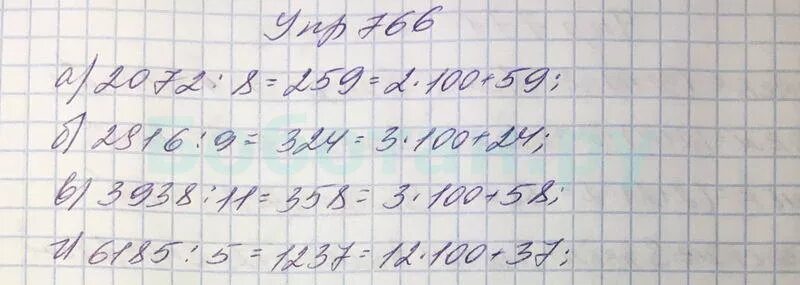 Упр 766
а) 2072 : 8 = 259 = 2·100+59;
б) 2916 : 9 = 324 = 3·100+24;
в) 3938 : 11 = 358 = 3·100+58;
г) 6185 : 5 = 1237 = 12·100+37;